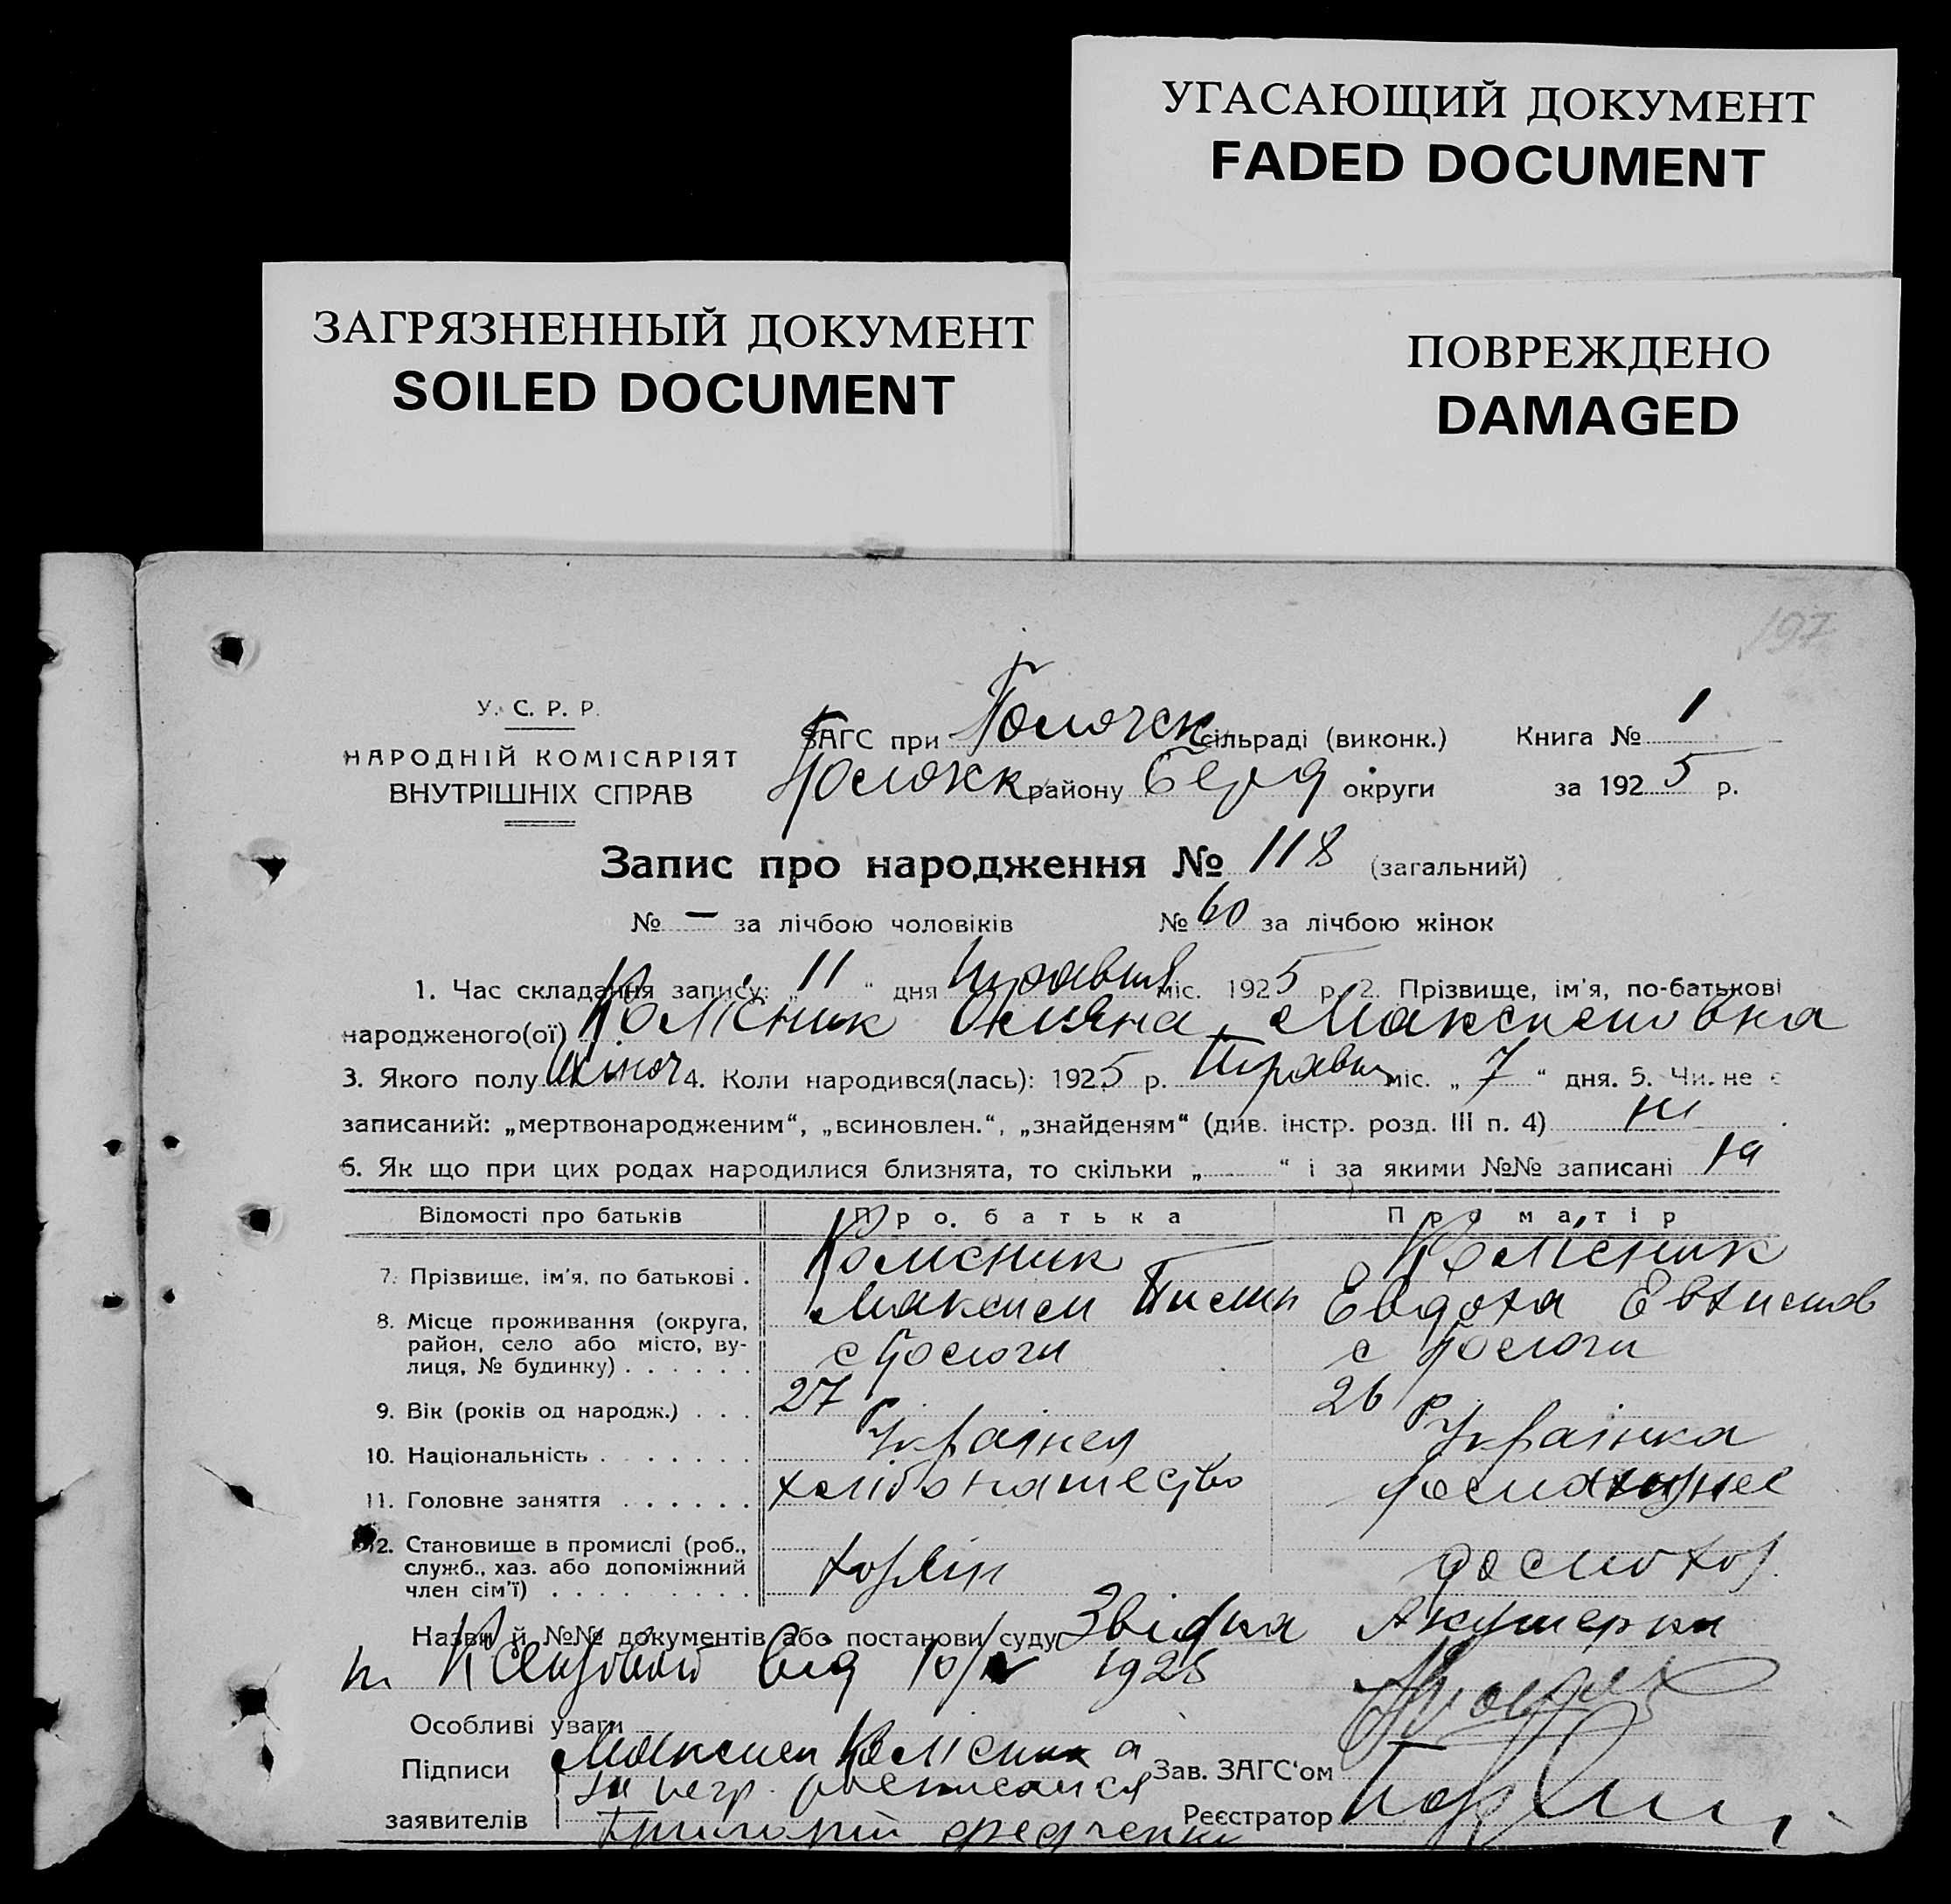 УГАСАЮЩИЙ ДОКУМЕНТ
FADED DOCUMENT
ЗАГРЯЗНЕННЫЙ ДОКУМЕНТ
SOILED DOCUMENT
ПОВРЕЖДЕНО
DAMAGED
197
У. С. Р. Р.
НАРОДНІЙ КОМІСАРІЯТ
ВНУТРІШНІХ СПРАВ
ЗАГС при сільраді (виконк.) Книга № 1
району округи за 1925 р.
Запис про народження № 118 (загальний)
№ — за лічбою чоловіків № 60 за лічбою жінок
1. Час складання запису: „ 11 “ дня Травня міс. 1925 р. 2. Прізвище, ім'я, по-батькові
народженого(ої) Колісник Максимовна
3. Якого полу жіноч 4. Коли народився(лась): 1925 р. Травня міс. „ 7 “ дня. 5. Чи не є
записаний: „мертвонародженим“, „всиновлен.“, „знайденям“ (див. інстр. розд. III п. 4) ні
6. Як що при цих родах народилися близнята, то скільки „ “ і за якими №№ записані
Відомості про батьків Про батька Про матір
7. Прізвище, ім'я, по батькові . Колісник Колісник
Максим Евдоха
8. Місце проживання (округа,
район, село або місто, ву-
лиця, № будинку) . . . . . . с с
9. Вік (років од народж.) . . . 27 р 26 р
10. Національність . . . . . . . Українец Українка
11. Головне заняття . . . . . .
12. Становище в промислі (роб.,
служб., хаз. або допоміжний
член сім'ї) . . . . . . . . .
Назви й №№ документів або постанови суду Звідка Акушерки
від 1925
Особливі уваги
Підписи Максим Колісник а Зав. ЗАГС'ом
за негр. росписался
заявителів Григорій Федченко Реєстратор